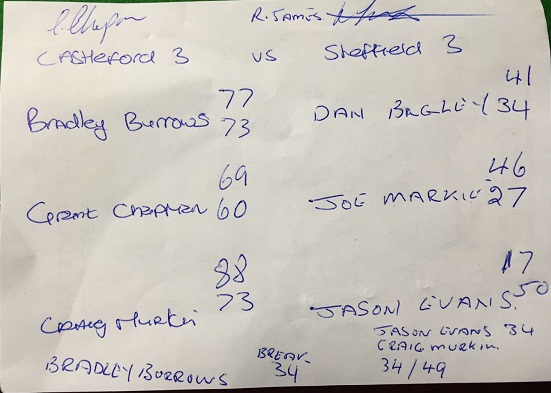 R. JAMES
CASTLEFORD 3 VS Sheffield 3
77 41
Bradley Burrows 73 DAN BAGLEY 34
69 46
Grant CHAPMAN 60 JOE MARKIE 27
88 17
CRAIG Murkin 73 JASON EVANS. 50
BREAK JASON EVANS 34
CRAIG MURKIN
BRADLEY BURROWS 34 34/49